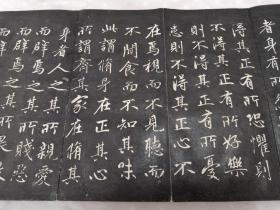 者身有
正有所恐懼則
得其正有所好樂
則不得其正有所憂
患則不得其正心不
在焉視而不見聽而
不聞食而不知其味
此謂脩身在正其心
所謂齊其家在脩其
身者人之其所親愛
而辟焉之其所賤惡
而辟焉之其所畏